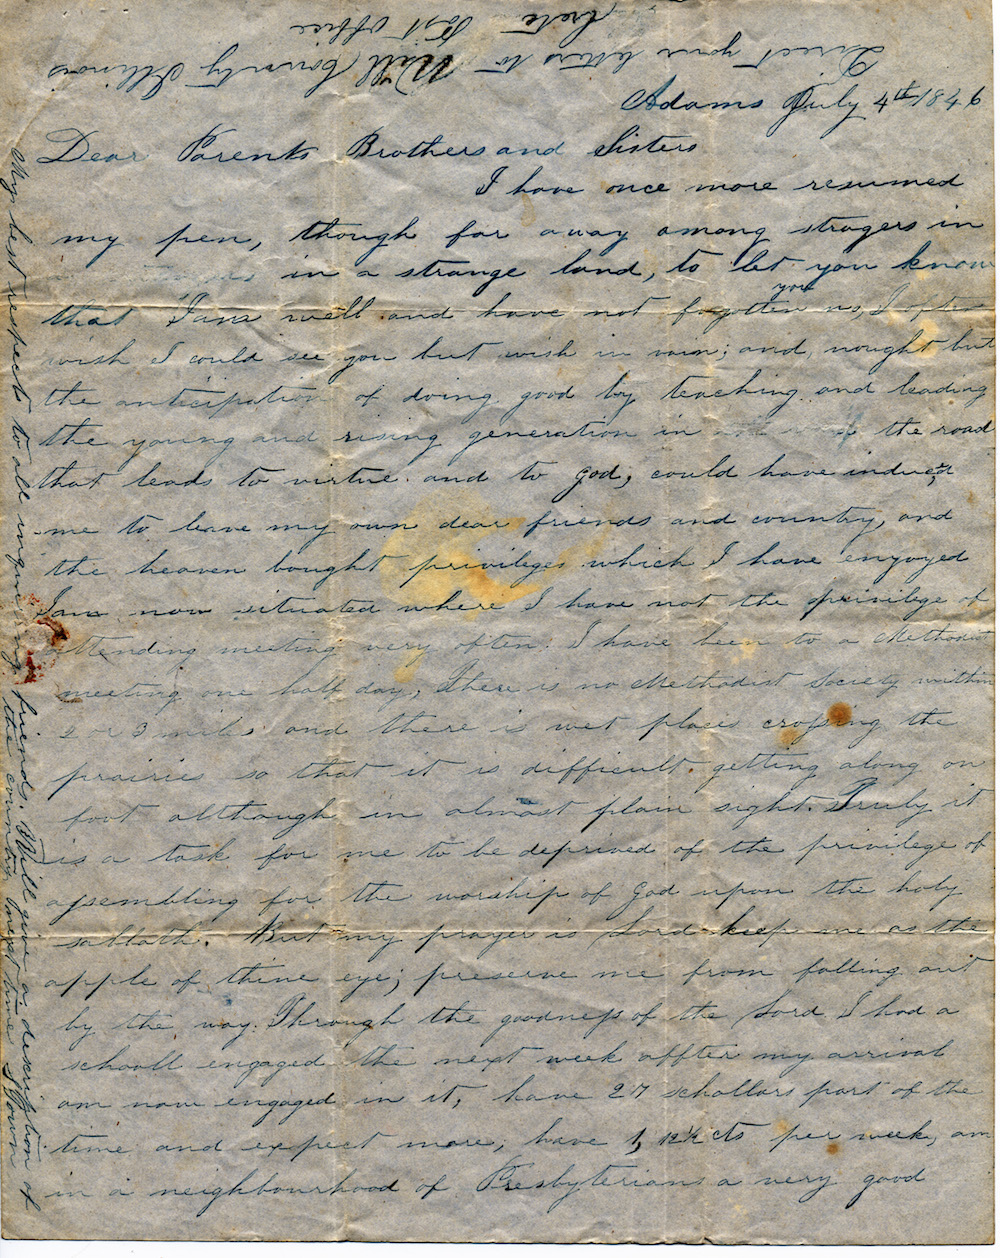 Direct your letters to Will County Illinois
Crete Post Office
Adams July 4th 1846
Dear Parents Brothers and Sisters
I have once more resumed
my pen, though far away among stragers in
in a strange land, to let you know
that I am well and have not forgotten you no, I often
wish I could see you but wish in vain; and, nought but
the anticipation of doing good by teaching and leading
the young and rising generation in the road
that leads to virtue and to God, could have induced
me to leave my own dear friends and country, and
the heaven bought privileges which I have enyoyed
I am now situated where I have not the privilege of
attending meeting very often. I have been to a Methodist
meeting one half day, There is no Methodist Society within
2 or 3 miles and there is wet places crossing the
prairies so that it is difficult getting along on
foot although in almost plain sight. Truly it
is a task for me to be deprived of the privilege of
assembling for the worship of God upon the holy
sabbath. But my prayer is Lord keep me as the
apple of thine eye; preserve me from falling out
by the way. Through the goodness of the Lord I had a
schooll engaged the next week affter my arrival
am now engaged in it, have 27 schollars part of the
time and expect more, have 1, 12½ cts per week, am
in a neighbourhood of Presbyterians a very good
My best respects to all inquireing friends. Will give a description of
the country next time I